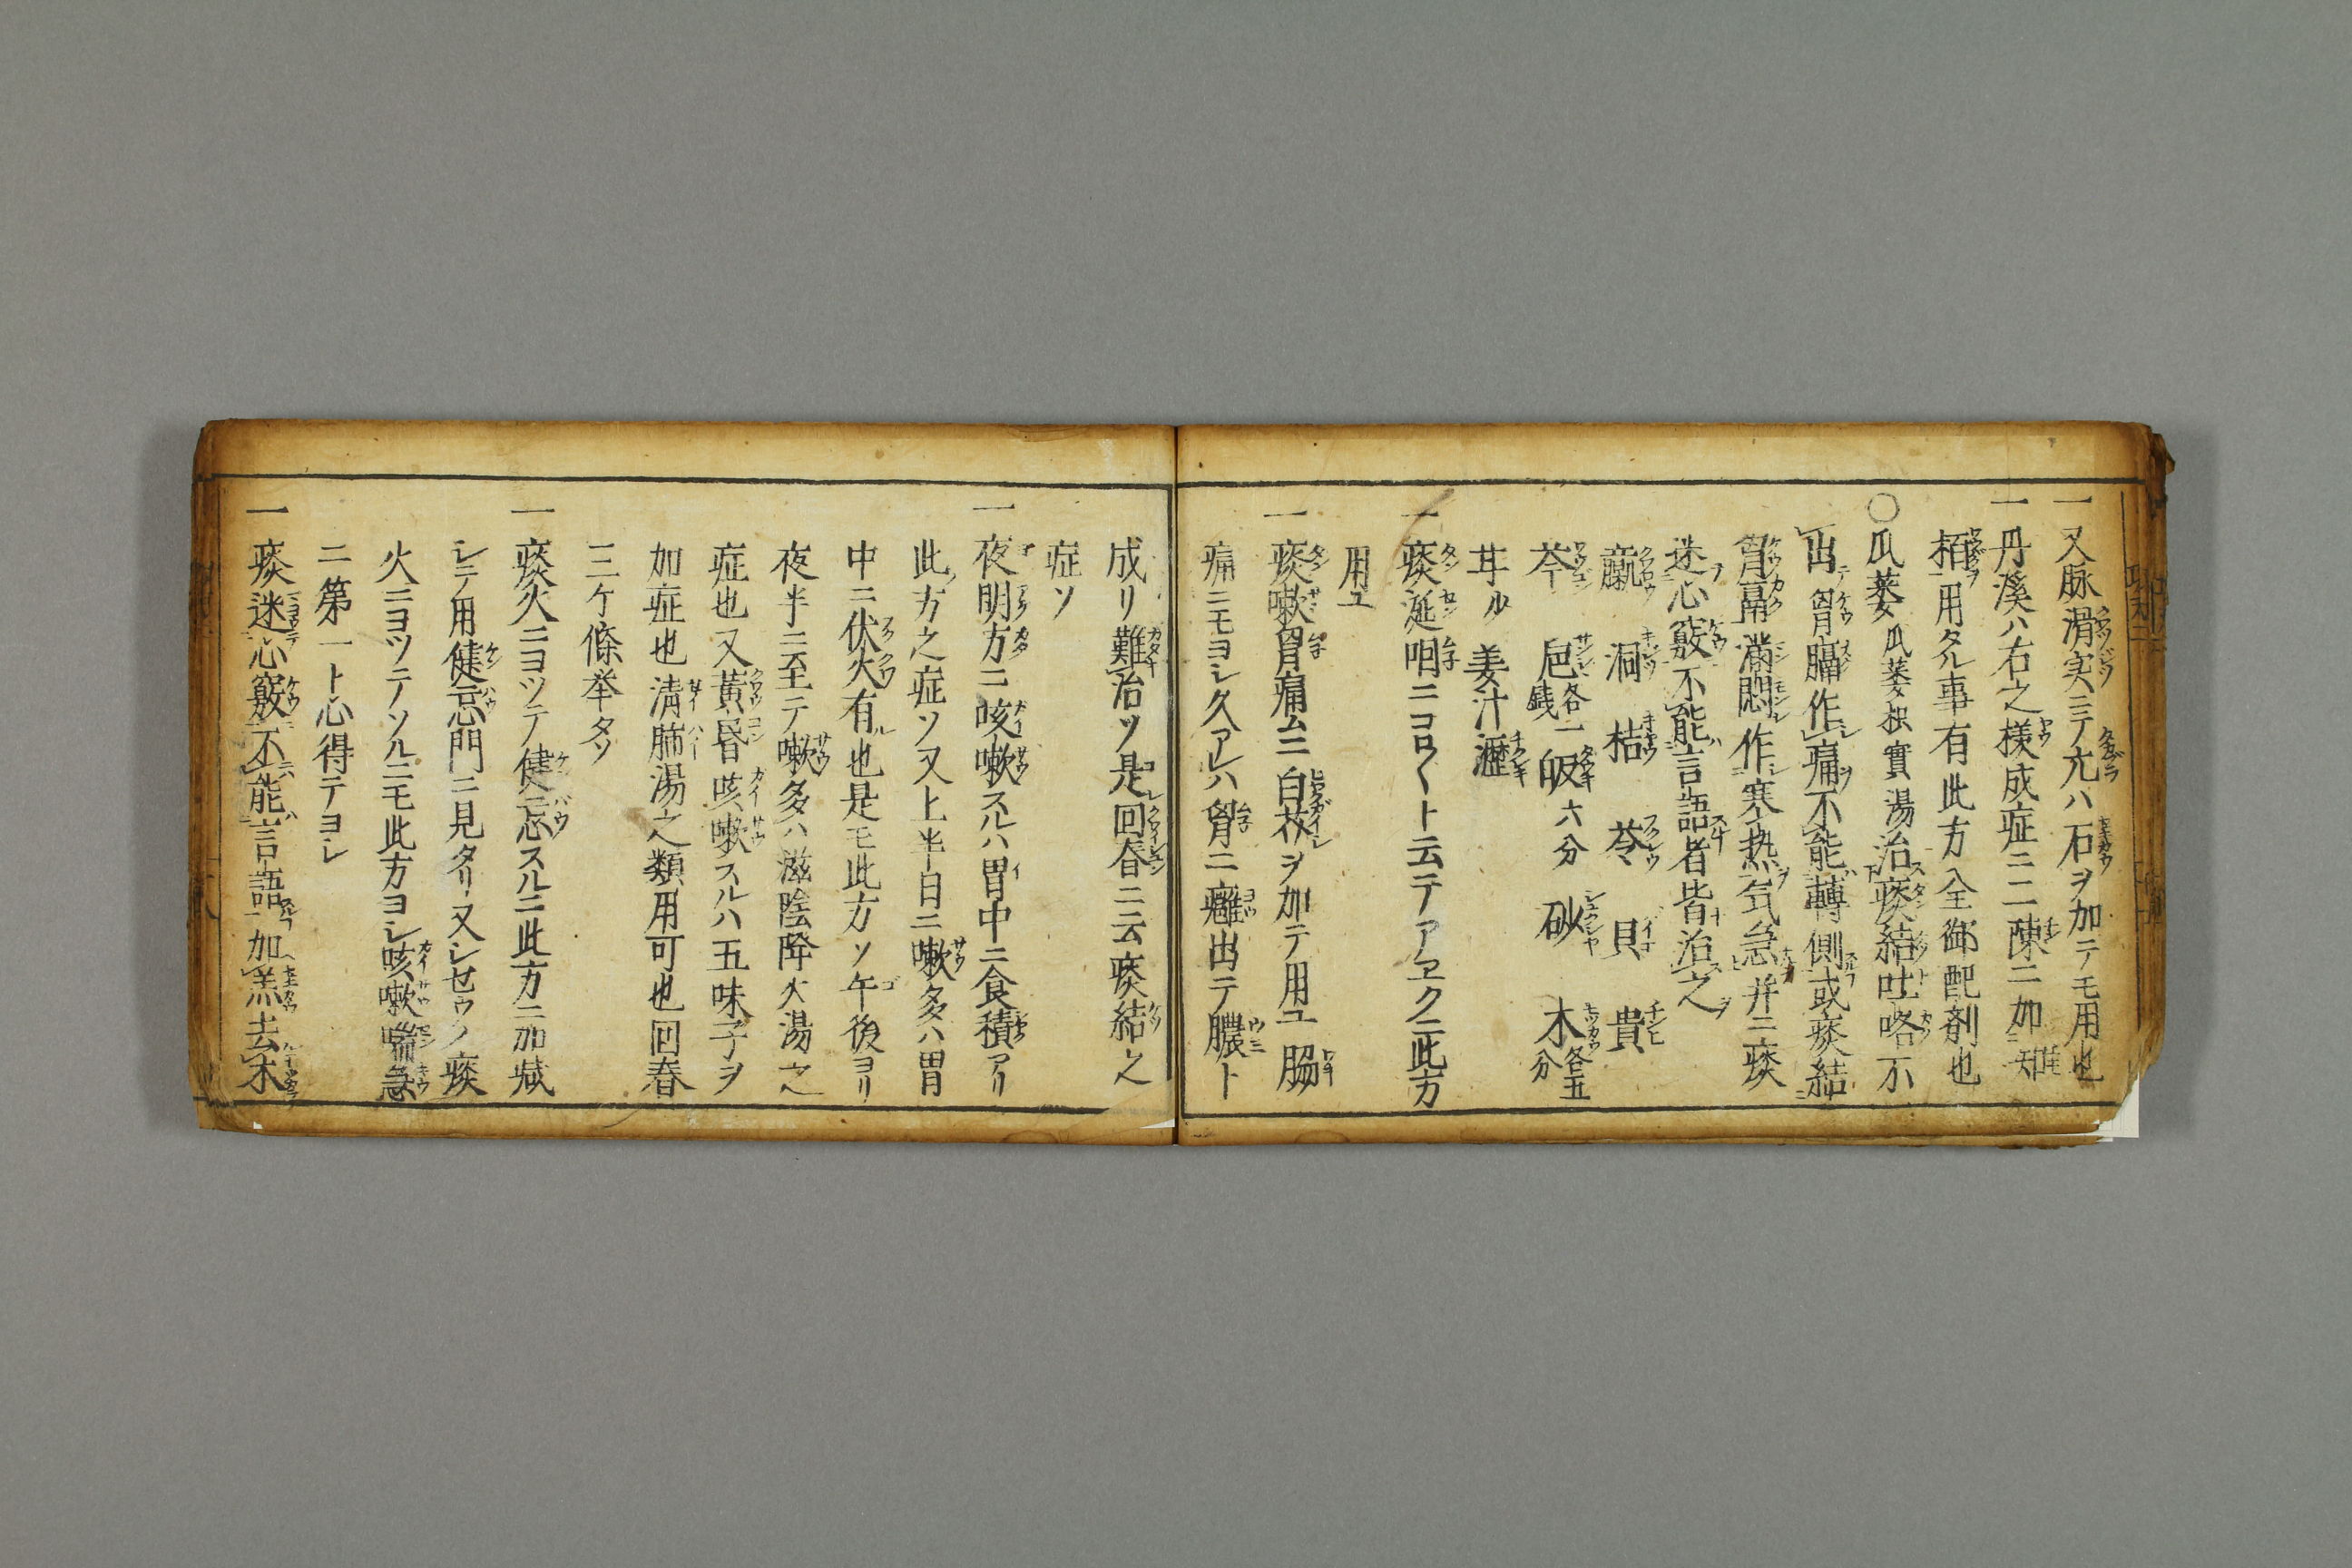 一又脉滑実ニテ尤ハ石ヲ加テモ用也
一丹溪ハ右之様成症ニ二陳ニ加知
栢用タル事有此方全御配剤也
○瓜蔞瓜蔞枳實湯治痰結吐咯不
出胷膈作痛不能轉側或痰結
胷鬲滿悶作寒热気急并ニ痰
迷心竅不能言語者皆治之
洞 桔 苓 貝 貴
芩 巵各一銭 六分 砂 木各五分
姜汁瀝
一痰涎咽ニコロ〱ト云テアヱクニ此方
用ユ
一痰嗽胷痛ムニ白芥ヲ加テ用ユ脇
痛ニモヨシ久アレハ胷ニ癰出テ膿ト
成リ難治ソ是回春ニ云痰結之
症ソ
一夜明方ニ咳嗽スルハ胃中ニ食積アリ
此方之症ソ又上半日ニ嗽多ハ胃
中ニ伏火有也是モ此方ソ午後ヨリ
夜半ニ至テ嗽多ハ滋陰降火湯之
症也又黄昏咳嗽スルハ五味子ヲ
加症也清肺湯之類用可也回春
三ケ條举タソ
一痰火ニヨツテ健忘スルニ此方ニ加减
シテ用健忘門ニ見タリ又シセウノ痰
火ニヨツテソルニモ此方ヨシ咳嗽喘急
ニ第一ト心得テヨシ
一痰迷心竅不能言語加羔去木